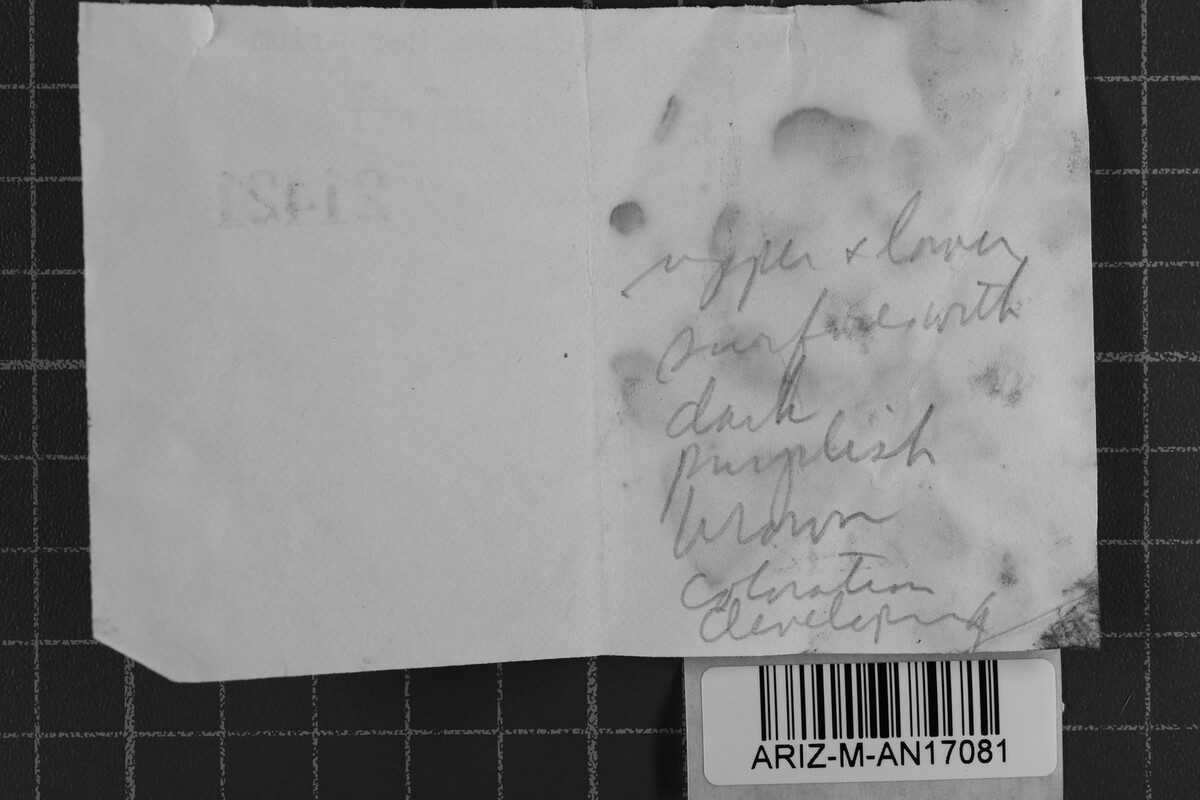 Herbarium
21421
upper & lower
surfaces with
dark
purplish
brown
coloration
developing
ARIZ-M-AN17081